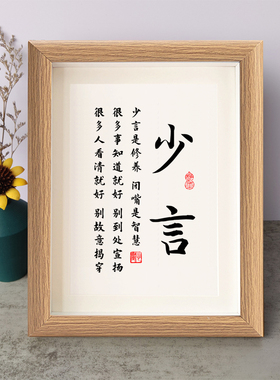 少言
少言是修养 闭嘴是智慧
很多事知道就好 别到处宣扬
很多人看清就好 别故意揭穿